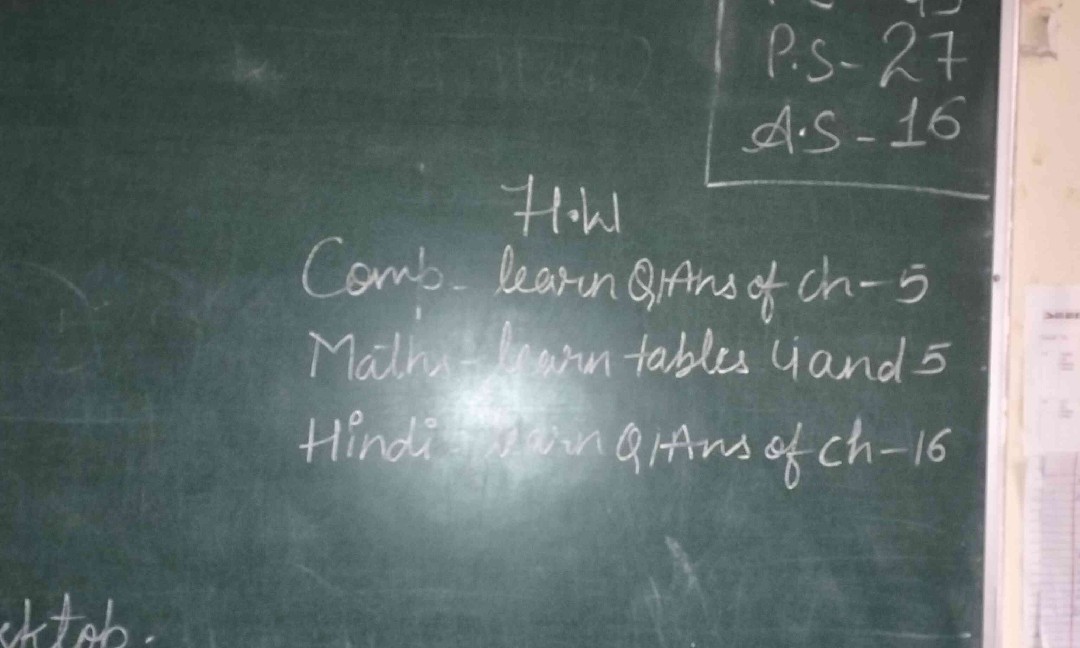 P.S - 27
A.S - 16
H.W
Comp - learn Q/Ans of ch - 5
Maths - learn tables 4 and 5
Hindi - learn Q/Ans of ch - 16